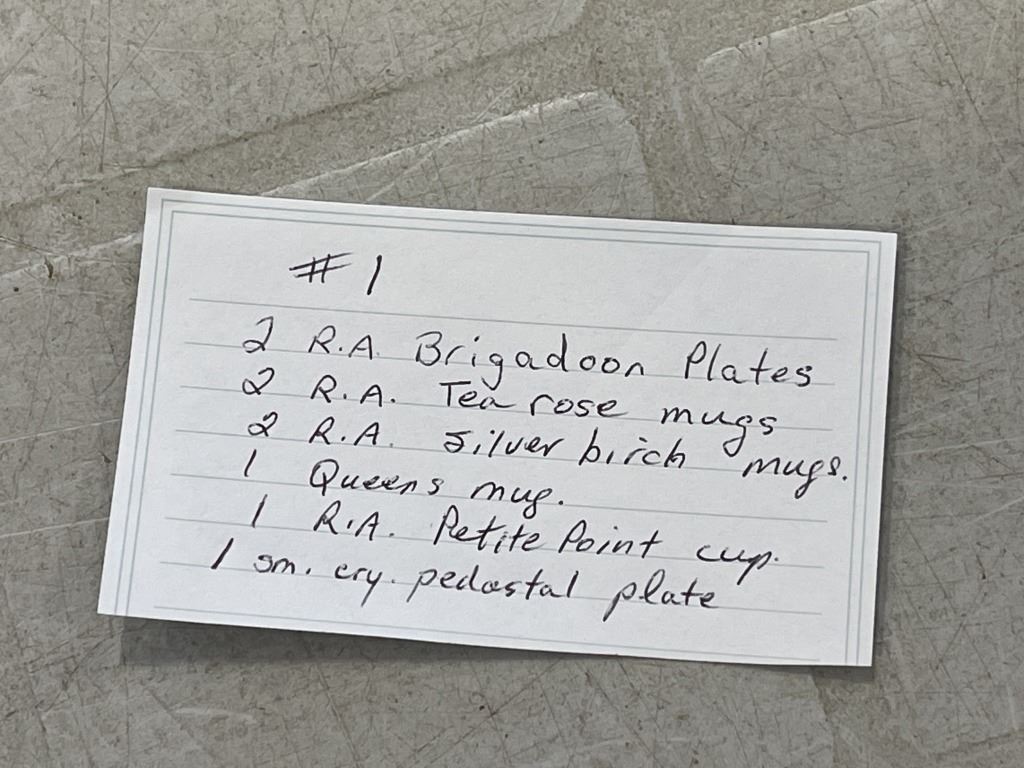 # 1
2 R.A. Brigadoon Plates
2 R.A. Tea rose mugs
2 R.A. Silver birch mugs.
1 Queens mug.
1 R.A. Petite Point cup.
1 sm. cry. pedastal plate